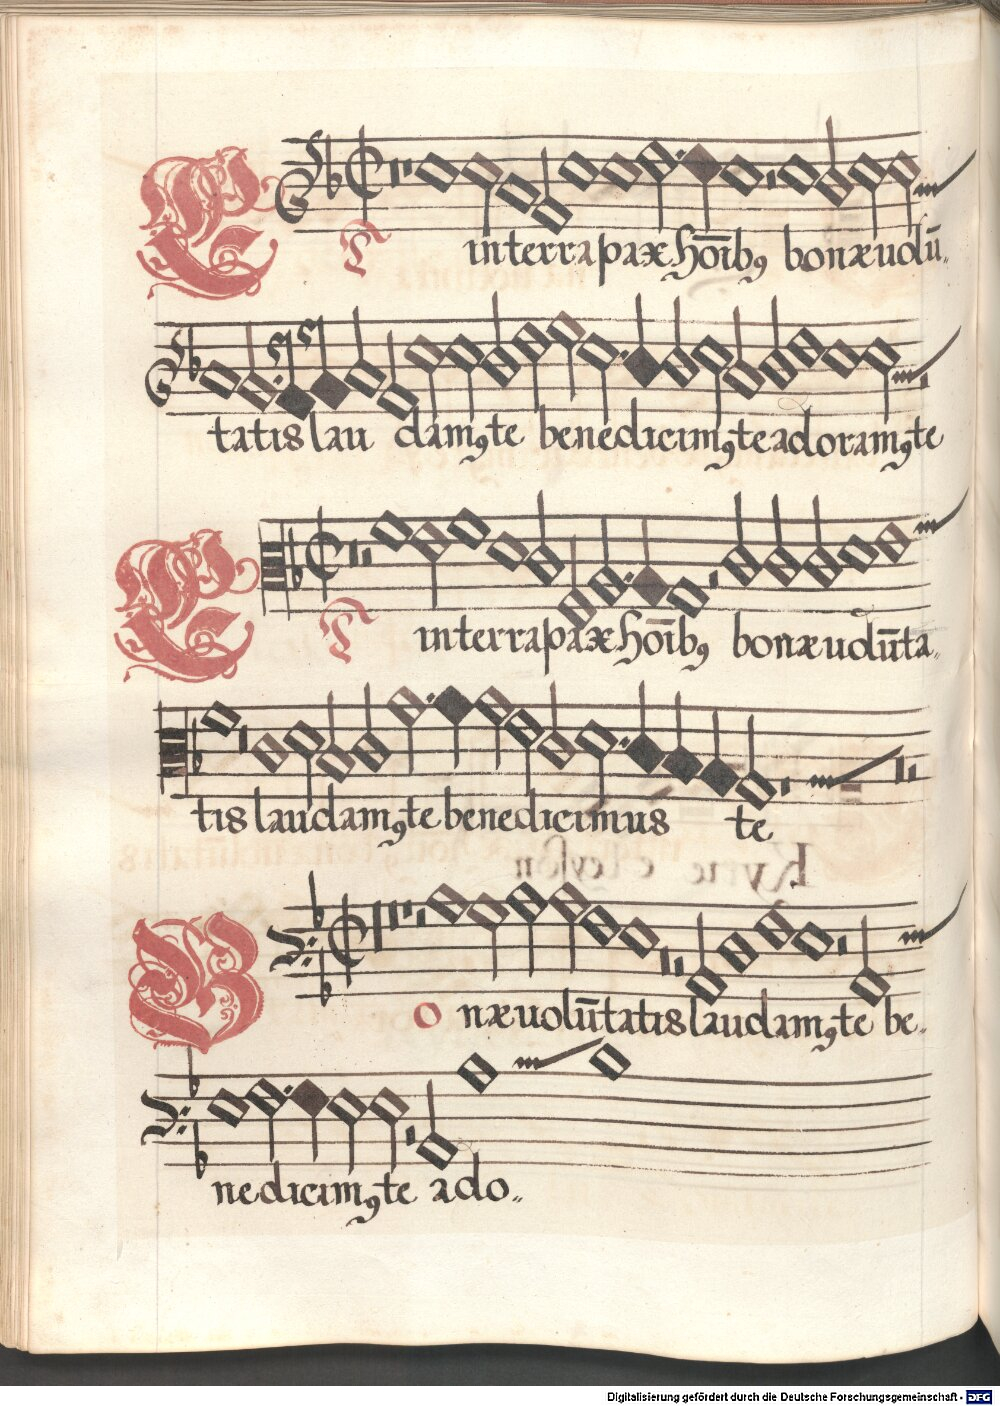 Et in terra pax hōibꝰ bonæ volū„
tatis laudamꝰ te benedicimꝰ te adoramꝰ te
Et in terra pax hōibꝰ bonæ volūta„
tis laudamꝰ te benedicimus te
Kyrie eleyson
Bonæ volūtatis laudamꝰ te be„
nedicimꝰ te ado„
Digitalisierung gefördert durch die Deutsche Forschungsgemeinschaft - DFG